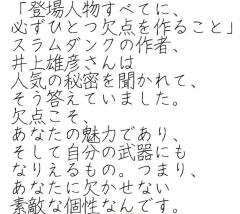 「登場人物すべてに、
必ずひとつ欠点を作ること」
スラムダンクの作者、
井上雄彦さんは
人気の秘密を聞かれて、
そう答えていました。
欠点こそ、
あなたの魅力であり、
そして自分の武器にも
なりえるもの。つまり、
あなたに欠かせない
素敵な個性なんです。